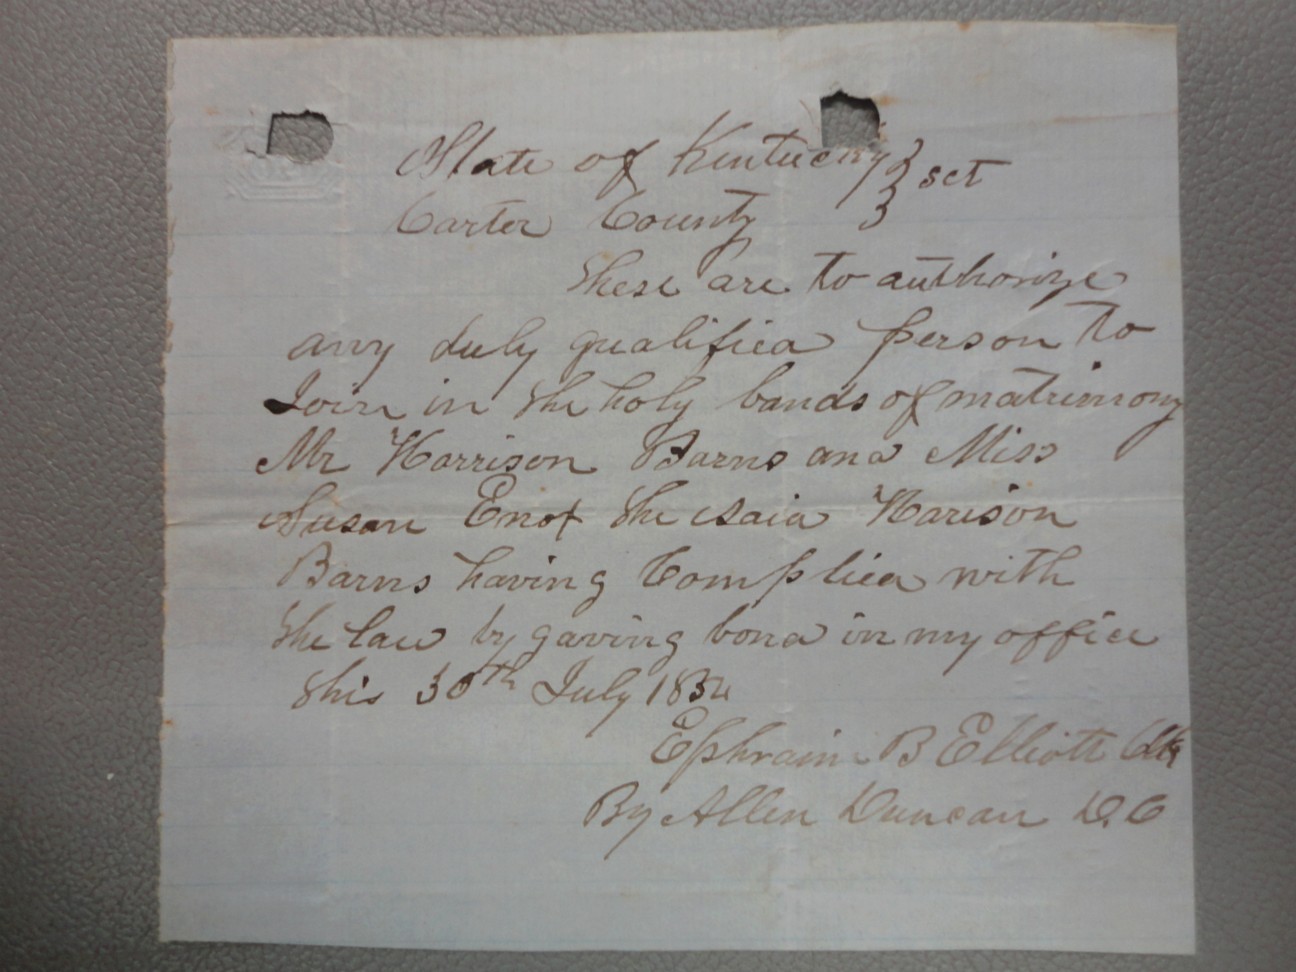 State of Kentucky } sct
Carter County }
These are to authorize
any duly qualified person to
Join in the holy bands of matrimony
Mr Harrison Barns and Miss
Susan Enox the said Harison
Barns having Complied with
the law by gaving bond in my office
this 30th July 1854
Ephraim B Elliott Clk
By Allen Duncan D.C